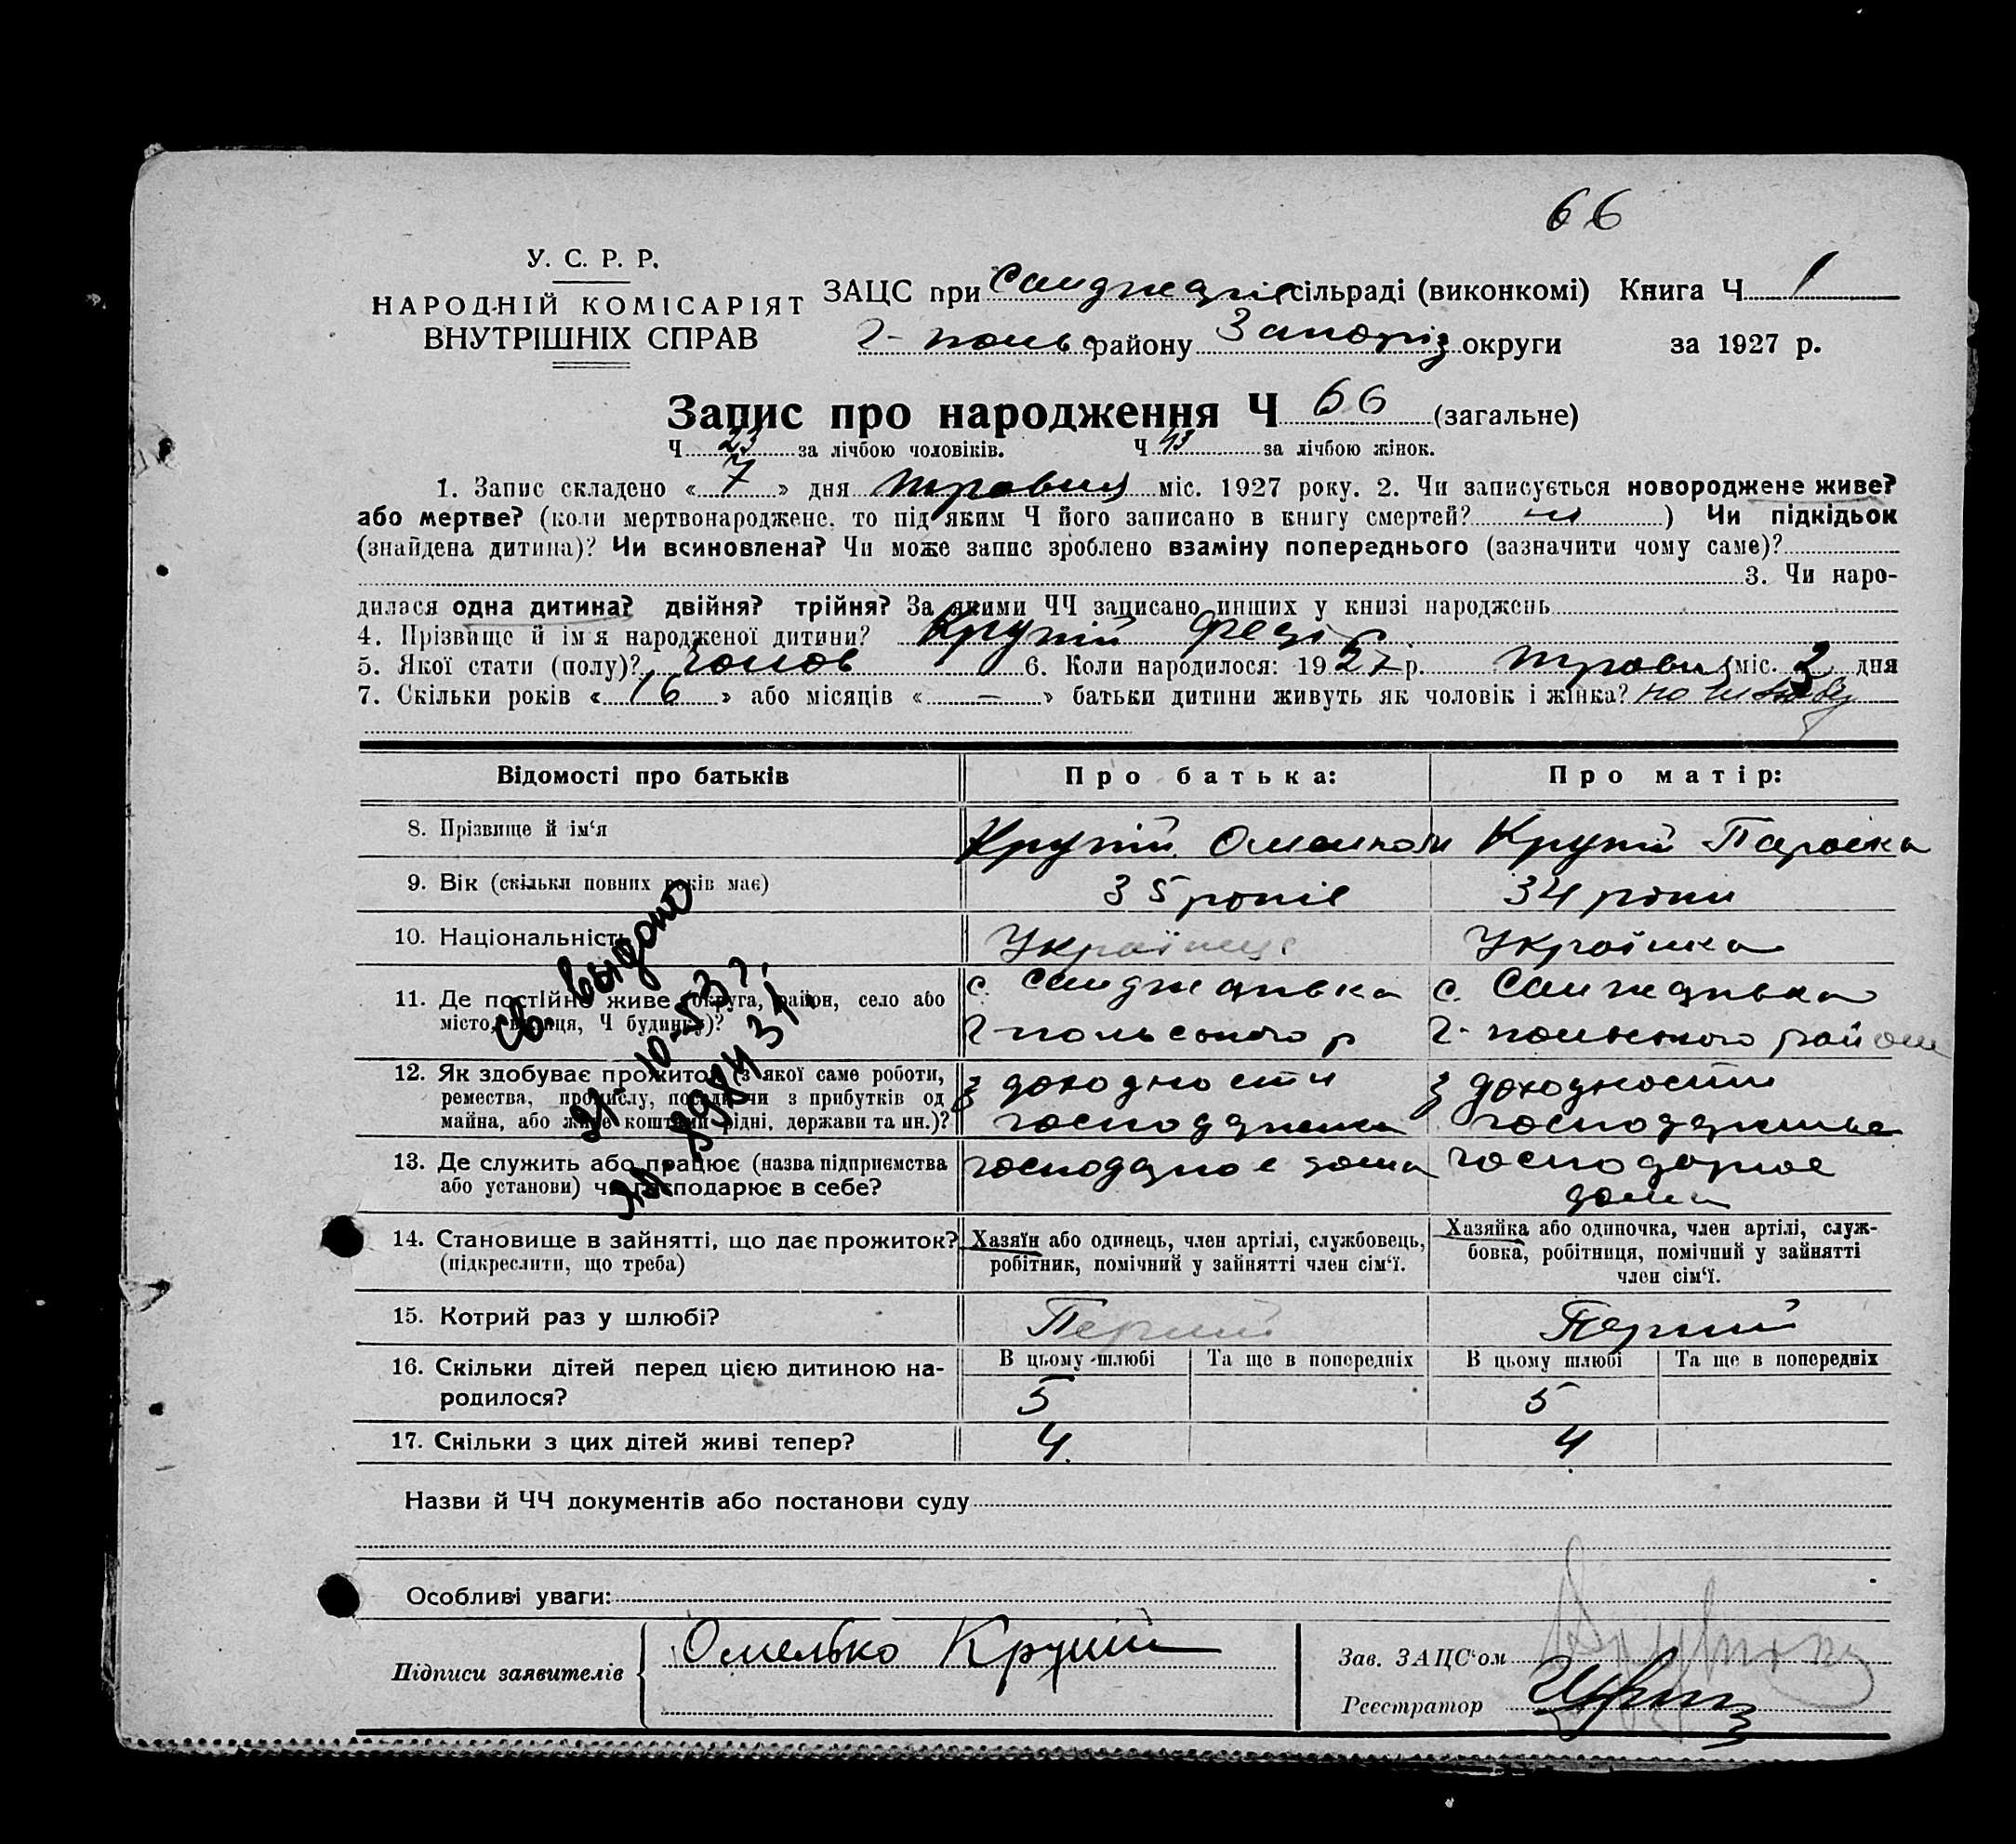 66
У. С. Р. Р.
НАРОДНІЙ КОМІСАРІЯТ
ВНУТРІШНІХ СПРАВ
ЗАЦС при сільраді (виконкомі) Книга Ч 1
району Запоріз округи за 1927 р.
Запис про народження Ч 66 (загальне)
Ч 23 за лічбою чоловіків. Ч 43 за лічбою жінок.
1. Запис складено « 7 » дня травня міс. 1927 року. 2. Чи записується новороджене живе?
або мертве? (коли мертвонароджене, то під яким Ч його записано в книгу смертей? ) Чи підкідьок
(знайдена дитина)? Чи всиновлена? Чи може запис зроблено взаміну попереднього (зазначити чому саме)?
3. Чи наро-
дилася одна дитина? двійня? трійня? За якими ЧЧ записано инших у книзі народжень
4. Прізвище й ім'я народженої дитини? Крупій Федір
5. Якої стати (полу)? чолов 6. Коли народилося: 1927 р. травня міс. 2 дня
7. Скільки років « 16 » або місяців « – » батьки дитини живуть як чоловік і жінка? по шлюбу
Відомості про батьків Про батька: Про матір:
8. Прізвище й ім‘я Крупій Крупій Параска
9. Вік (скільки повних років має) 35 років 34 роки
10. Національність Українець Українка
11. Де постійно живе (округа, район, село або с. Санджарівка с. Санжарівка
місто, вулиця, Ч будинку)? Г-польского р Г-польського району
12. Як здобуває прожиток (з якої саме роботи, з доходности з доходности
ремества, промислу, посади чи з прибутків од
майна, або живе коштами рідні, держави та ин.)? господарства
13. Де служить або працює (назва підприємства господарює дома господарює
або установи) чи господарює в себе? дома
14. Становище в зайнятті, що дає прожиток? Хазяїн або одинець, член артілі, службовець, Хазяйка або одиночка, член артілі, служ-
(підкреслити, що треба) робітник, помічний у зайнятті член сім‘ї. бовка, робітниця, помічний у зайнятті
член сім‘ї.
15. Котрий раз у шлюбі? Перший Перший
16. Скільки дітей перед цією дитиною на- В цьому шлюбі Та ще в попередніх В цьому шлюбі Та ще в попередніх
родилося? 5 5
17. Скільки з цих дітей живі тепер? 4 4
св. выдано
21 10-53 г.
Назви й ЧЧ документів або постанови суду
Особливі уваги:
Підписи заявителів Омелько Крупій
Зав. ЗАЦС‘ом
Реєстратор